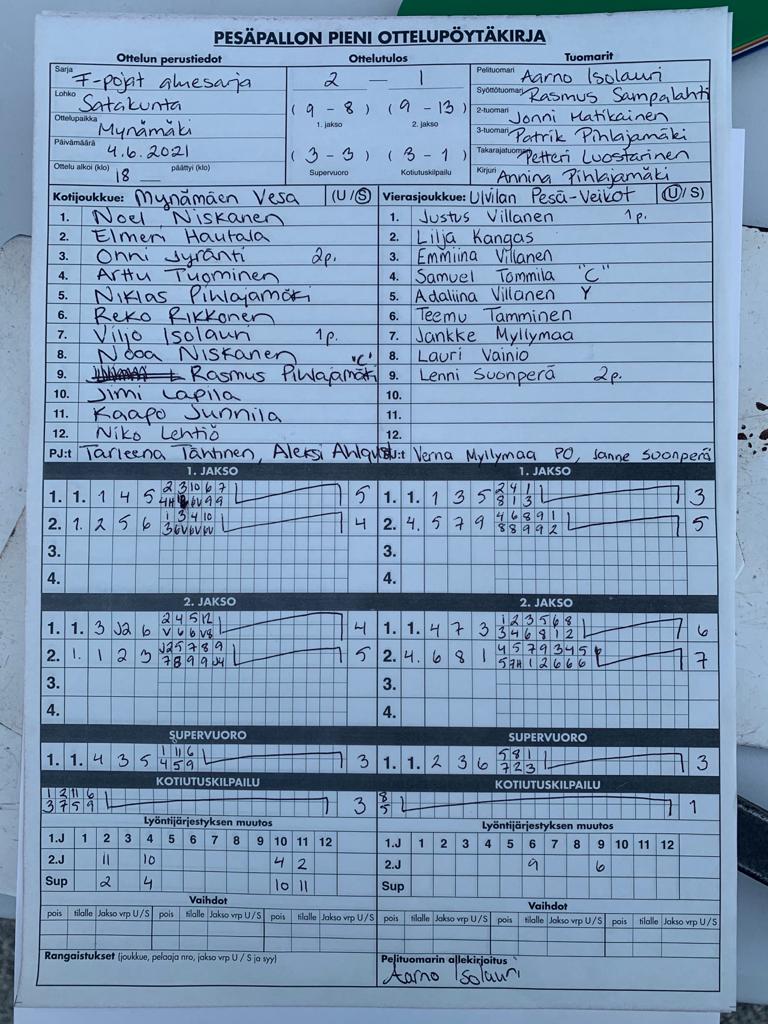 PESÄPALLON PIENI OTTELUPÖYTÄKIRJA
Ottelun perustiedot
Sarja F-pojat aluesarja
Lohko Satakunta
Ottelupaikka Mynämäki
Päivämäärä 4.6.2021
Ottelu alkoi (klo) 18 päättyi (klo)
Ottelutulos
2 — 1
( 9 - 8 ) ( 9 - 13 )
1. jakso 2. jakso
( 3 - 3 ) ( 3 - 1 )
Supervuoro Kotiutuskilpailu
Tuomarit
Pelituomari Aarno Isolauri
Syöttötuomari Rasmus Sampalahti
2-tuomari Jonni Matikainen
3-tuomari Patrik Pihlajamäki
Takarajatuomari Petteri Luostarinen
Kirjuri Annina Pihlajamäki
Kotijoukkue: Mynämäen Vesa (U/S)
1. Noel Niskanen
2. Elmeri Hautala
3. Onni Jyränti 2p.
4. Arttu Tuominen
5. Niklas Pihlajamäki
6. Reko Rikkonen
7. Viljo Isolauri 1p.
8. Nooa Niskanen "C"
9. Rasmus Pihlajamäki
10. Jimi Lapila
11. Kaapo Junnila
12. Niko Lehtiö
PJ:t Tarleena Tähtinen, Aleksi
Vierasjoukkue: Ulvilan Pesä-Veikot (U/S)
1. Justus Villanen 1p.
2. Lilja Kangas
3. Emmiina Villanen
4. Samuel Tommila "C"
5. Adaliina Villanen Y
6. Teemu Tamminen
7. Jankke Myllymaa
8. Lauri Vainio
9. Lenni Suonperä 2p.
10.
11.
12.
PJ:t Verna Myllymaa PO, Janne Suonperä
1. JAKSO
1. 1. 1 4 5 5
2. 1. 2 5 6 4
3.
4.
1. JAKSO
1. 1. 1 3 5 2 4 1 3
8 1 3
2. 4. 5 7 9 4 6 8 9 1 5
8 8 9 9 2
3.
4.
2. JAKSO
1. 1. 3 J2 6 2 4 5 12 4
V 6 6 V8
2. 1. 1 2 3 J2 5 7 8 9 5
7 8 9 9 J4
3.
4.
2. JAKSO
1. 1. 4 7 3 1 2 3 5 6 8 6
3 4 6 8 1 2
2. 4. 6 8 1 4 5 7 9 3 4 5 7
3.
4.
SUPERVUORO
1. 1. 4 3 5 1 11 6 3
4 5 9
SUPERVUORO
1. 1. 2 3 6 5 8 1 3
7 2 3
KOTIUTUSKILPAILU
1 2 11 6 3
3 7 5 9
KOTIUTUSKILPAILU
8 1
5
Lyöntijärjestyksen muutos
1.J 1 2 3 4 5 6 7 8 9 10 11 12
2.J 11 10 4 2
Sup 2 4 10 11
Lyöntijärjestyksen muutos
1.J 1 2 3 4 5 6 7 8 9 10 11 12
2.J 9 6
Sup
Vaihdot
pois tilalle Jakso vrp U/S pois tilalle Jakso vrp U/S pois tilalle Jakso vrp U/S
Vaihdot
pois tilalle Jakso vrp U/S pois tilalle Jakso vrp U/S pois tilalle Jakso vrp U/S
Rangaistukset (joukkue, pelaaja nro, jakso vrp U / S ja syy)
Pelituomarin allekirjoitus
Aarno Isolauri